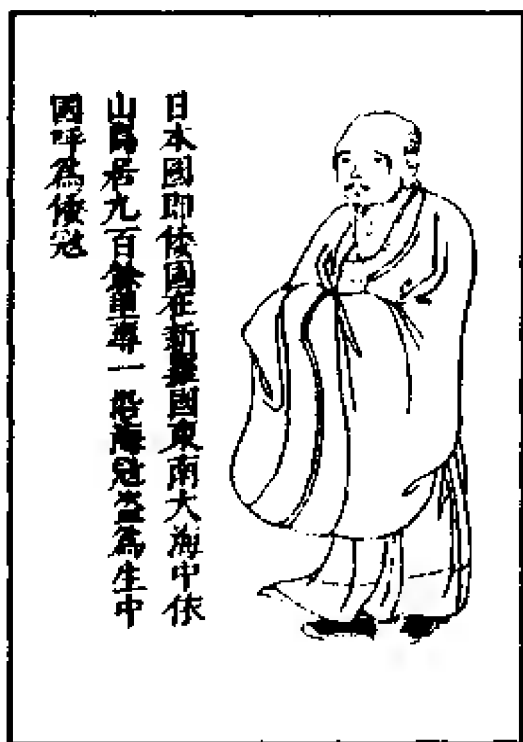 日本國即倭國在新羅國東南大海中依
山島居九百餘里專一沿海寇盜爲生中
國呼爲倭寇